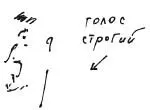 голос
строгий